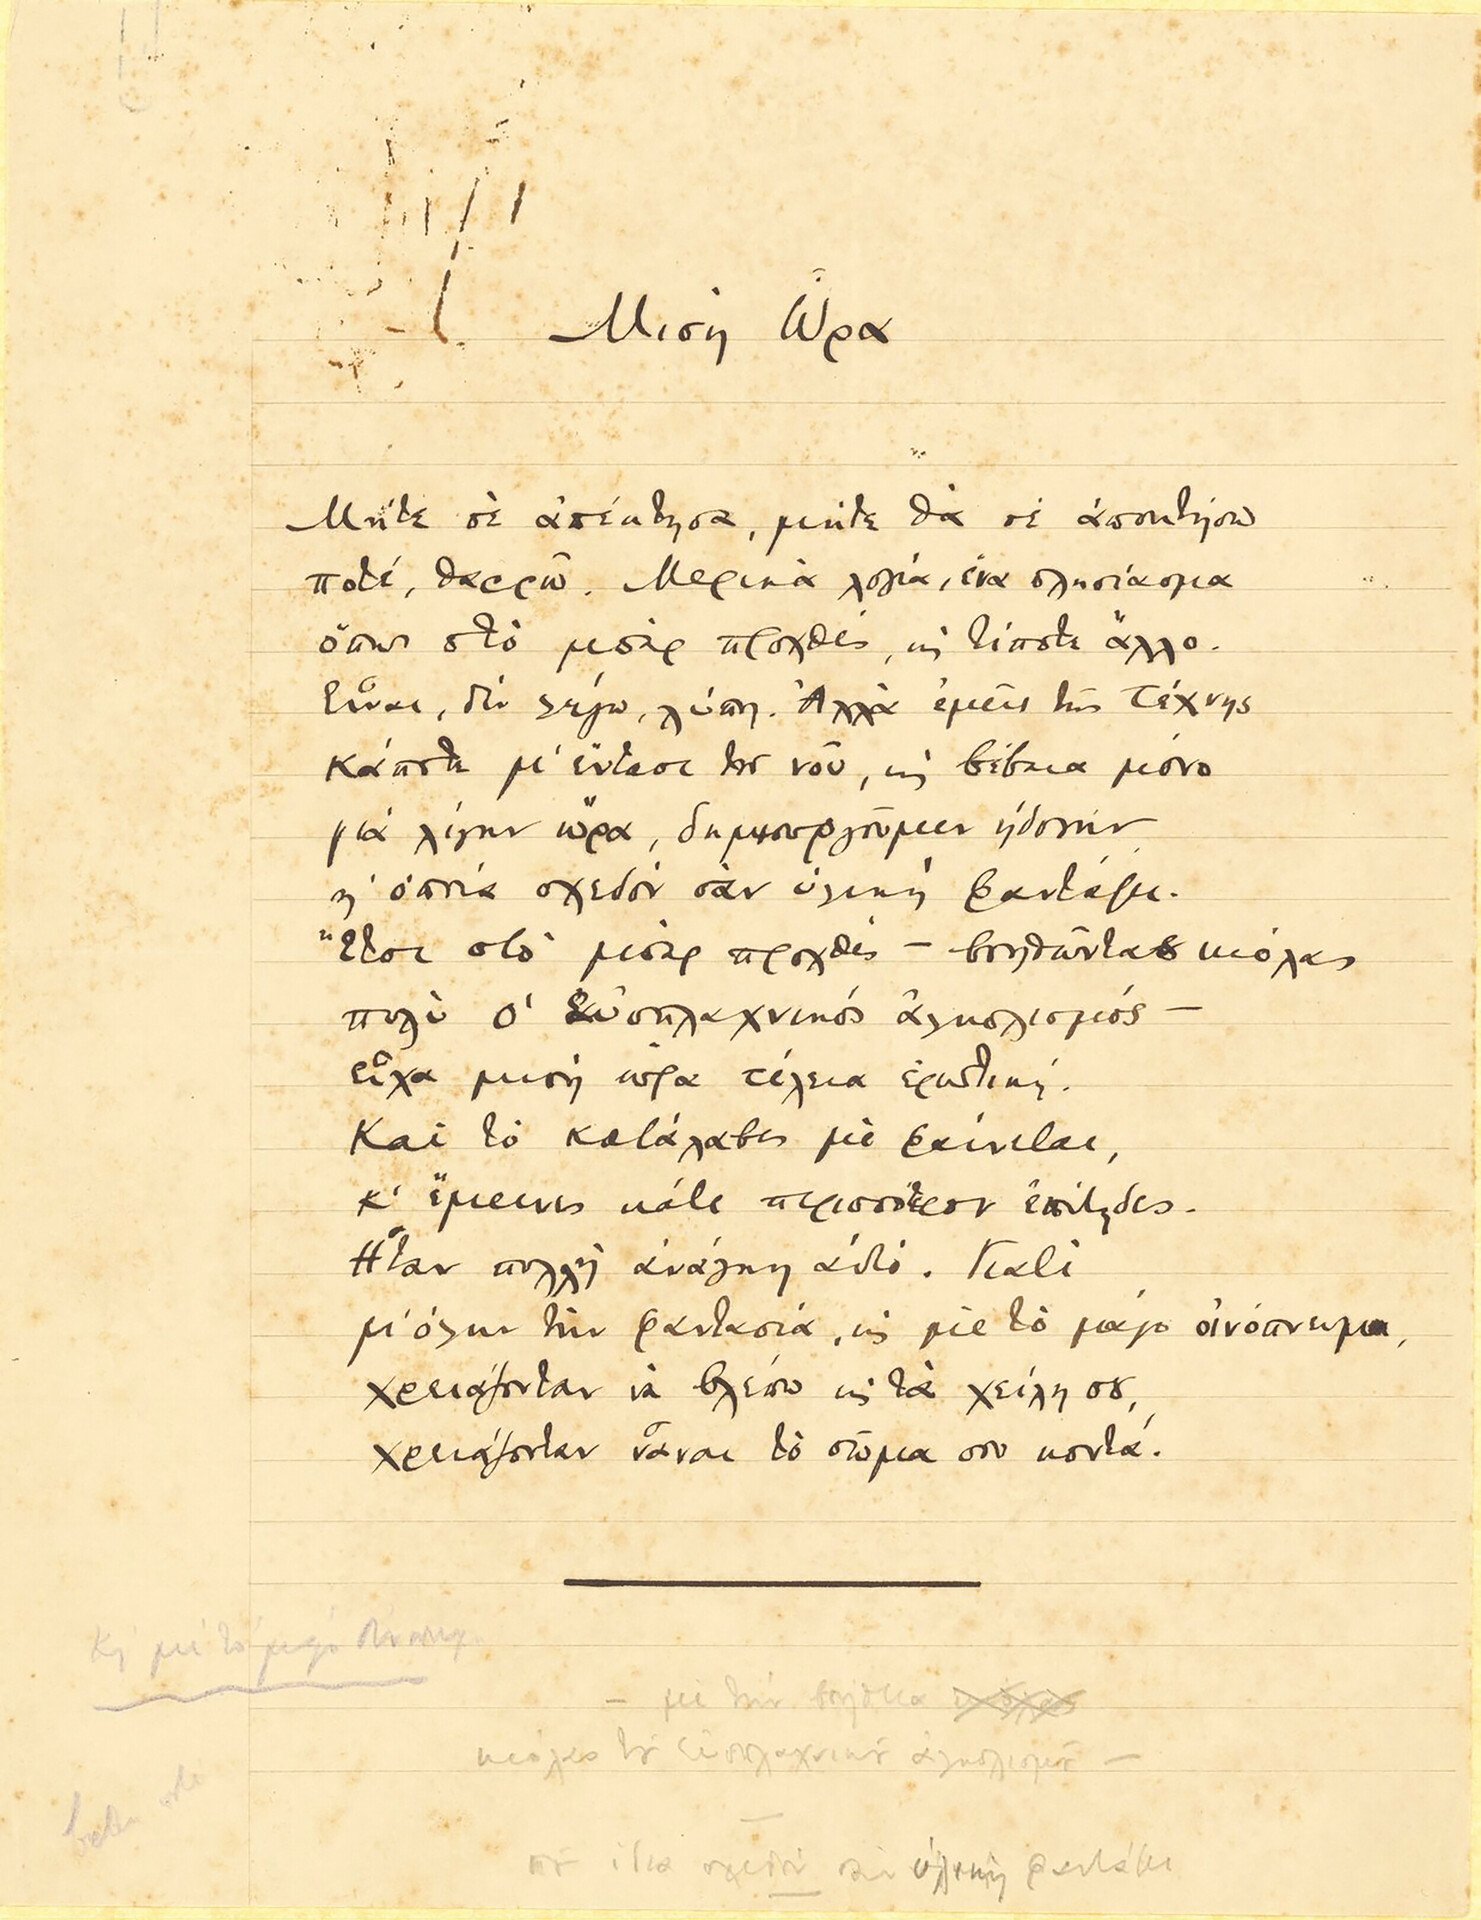 Μισή Ώρα
Μήτε σὲ ἀπέκτησα, μήτε θὰ σὲ ἀποκτήσω
ποτέ, θαρρῶ. Μερικὰ λόγια, ἕνα πλησίασμα
ὅπως στὸ μπὰρ προχθές, κι τίποτε ἄλλο.
Εἶναι, δὲν λέγω, λύπη. Ἀλλὰ ἐμεῖς τῆς Τέχνης
κάποτε μ' ἔντασι τοῦ νοῦ, κι βέβαια μόνο
γιὰ λίγην ὥρα, δημιουργοῦμεν ἡδονὴν
ἡ ὁποία σχεδὸν σὰν ὑλικὴ φαντάζει.
Ἔτσι στὸ μπὰρ προχθές — βοηθῶντας κιόλας
πολὺ ὁ εὐσπλαχνικός ἀλκολισμός —
εἶχα μισὴ ὥρα τέλεια ἐρωτική.
Καὶ τὸ κατάλαβες μὲ φαίνεται,
κ' ἔμεινες κάτι περισσότερον ἐπίτηδες.
Ἦταν πολλὴ ἀνάγκη αὐτό. Γιατὶ
μ' ὅλην τὴν φαντασία, κι μὲ τὸ μάγο οἰνόπνευμα,
χρειάζονταν νὰ βλέπω κι τὰ χείλη σου,
χρειάζονταν νἆναι τὸ σῶμα σου κοντά.
Κι μὲ τὸ μάγο
— μὲ τὴν βοήθεια κιόλας
κιόλας τοῦ εὐσπλαχνικοῦ ἀλκολισμοῦ —
σχεδὸν σὰν ὑλικὴ φαντάζει